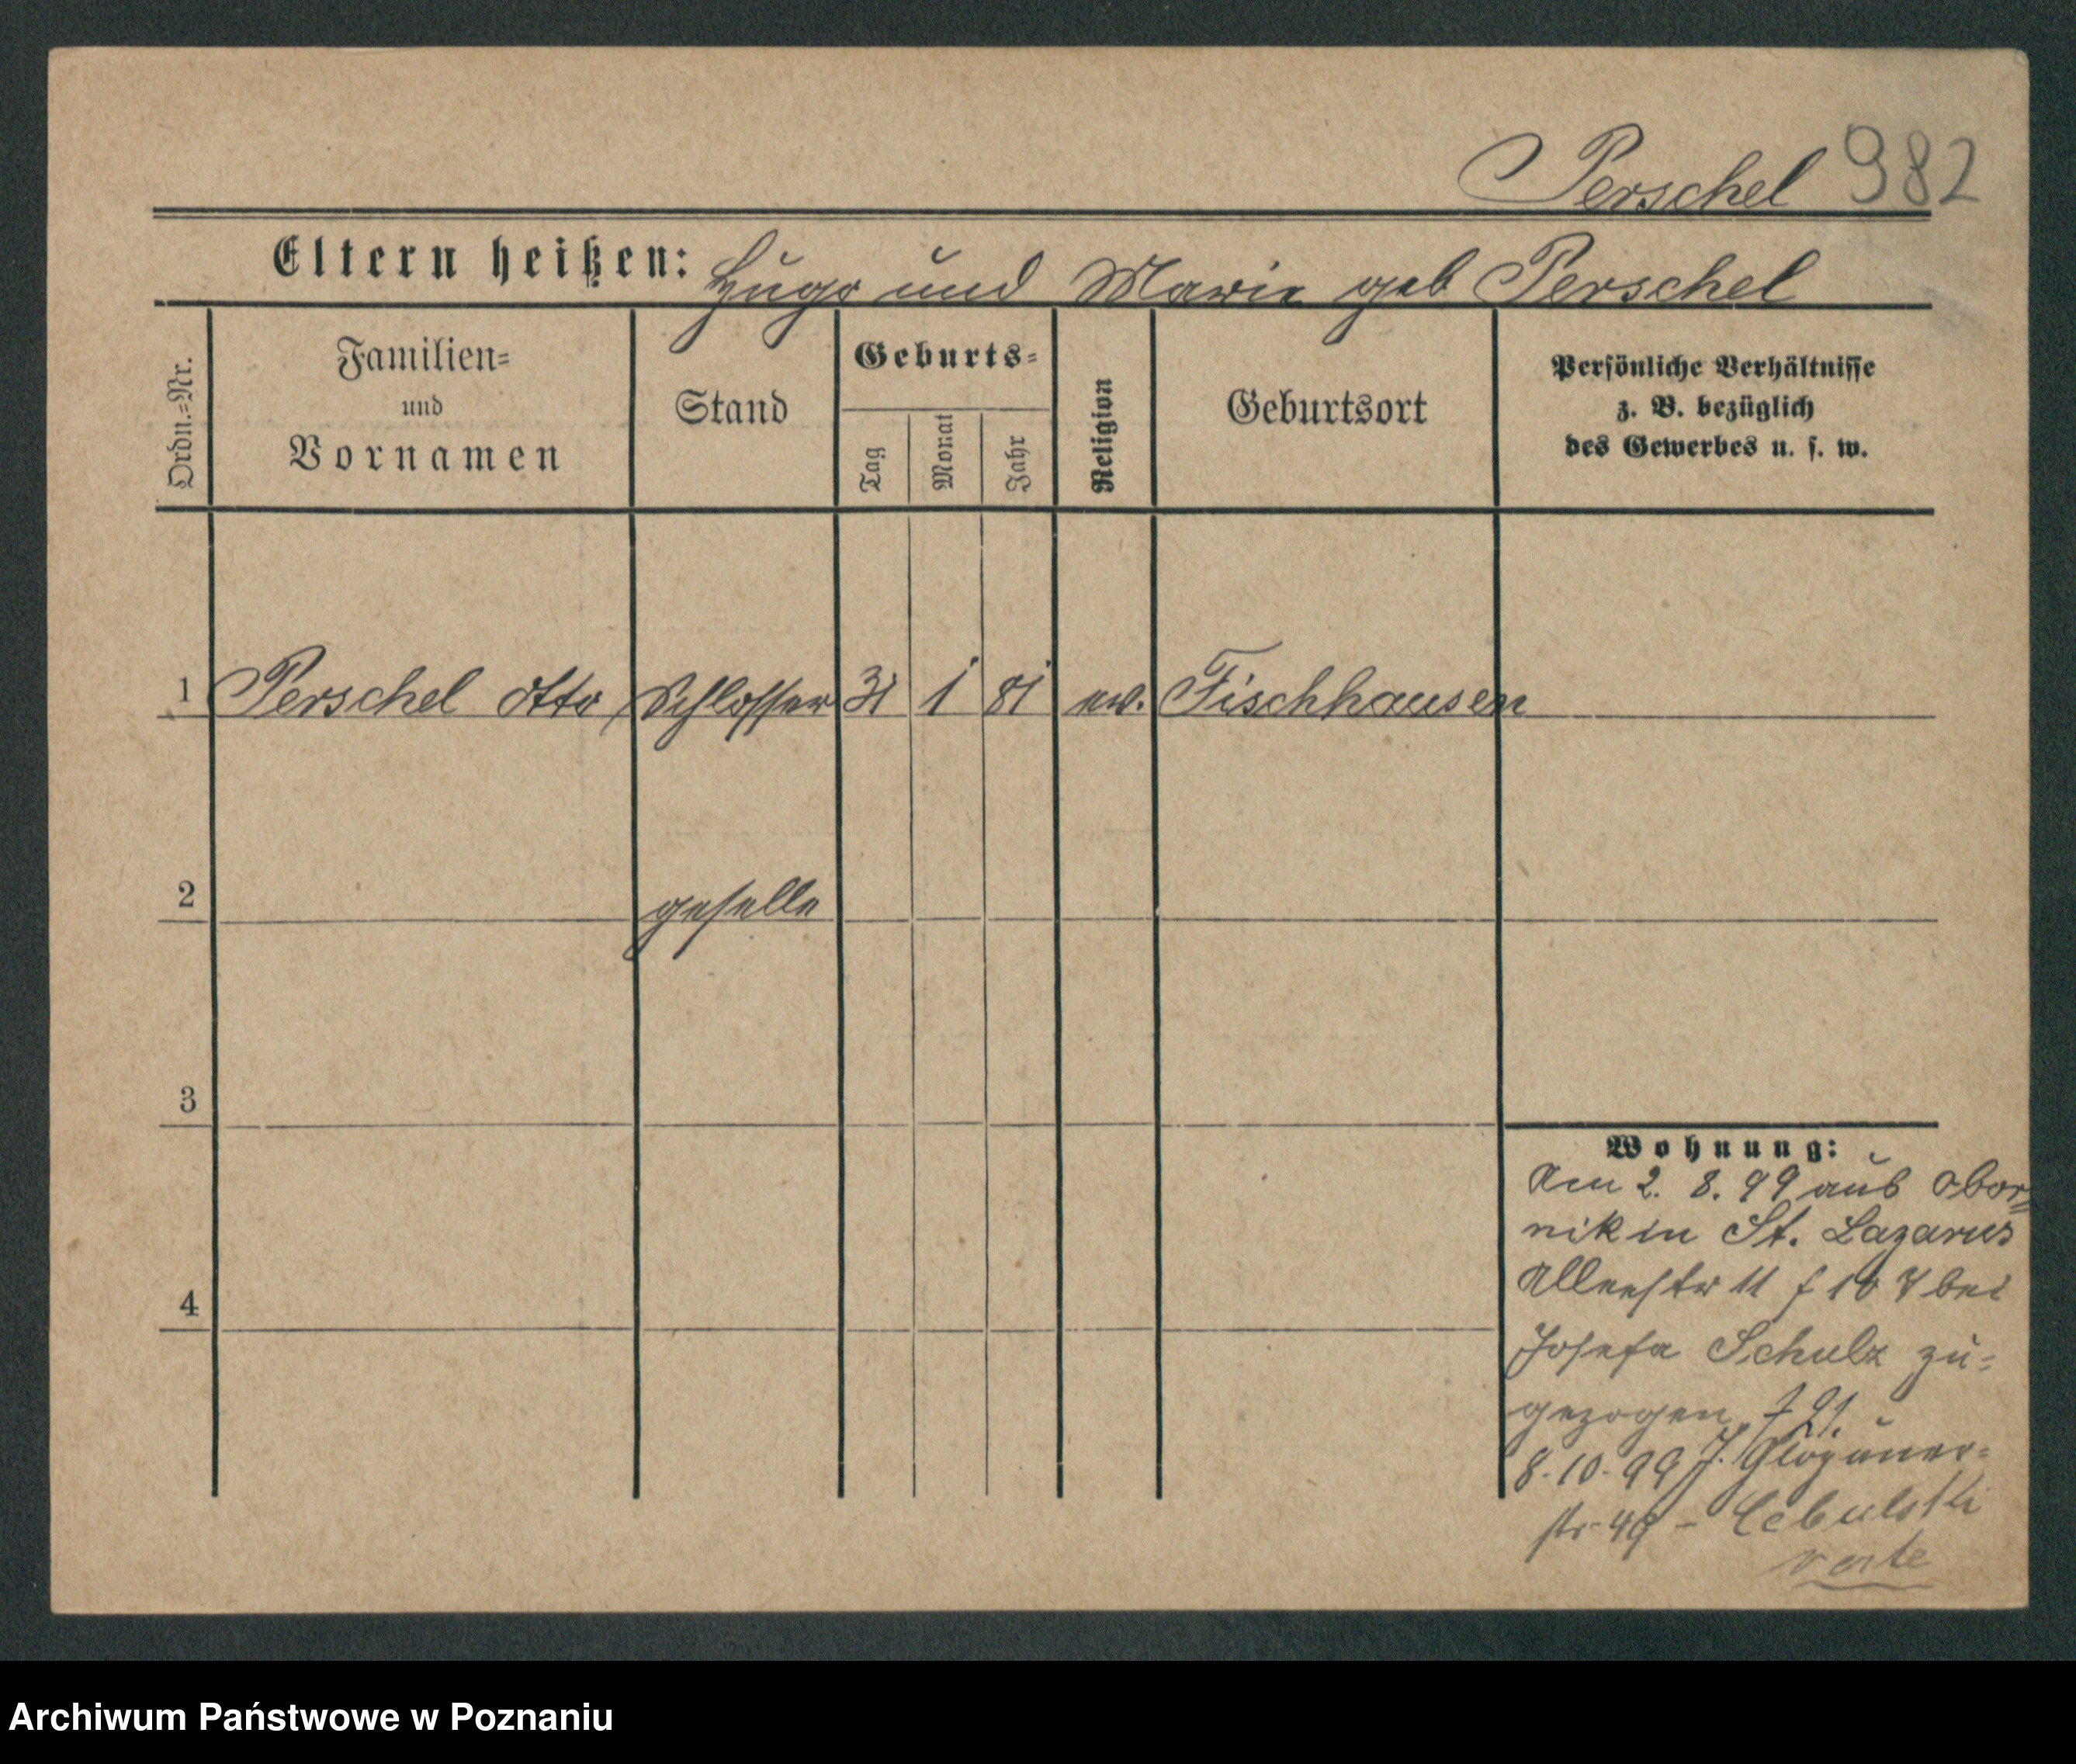 Perschel 982
Eltern heißen: Hugo und Marie geb Perschel
Ordn.=Nr.
Familien=
und
Vornamen
Stand
Geburts=
Tag
Monat
Jahr
Religion
Geburtsort
Persönliche Verhältnisse
z. B. bezüglich
des Gewerbes u. s. w.
1 Perschel Otto Schlosser 31 1 81 ev. Fischhausen
2 geselle
3
4
Wohnung:
Am 2. 8. 99 aus Obor=
nik in St. Lazarus
Alleestr 11 bei
Josefa Schulz zu=
gezogen
8.10.99 J. Glogauer=
str. 49 – Cebulski
verte
Archiwum Państwowe w Poznaniu